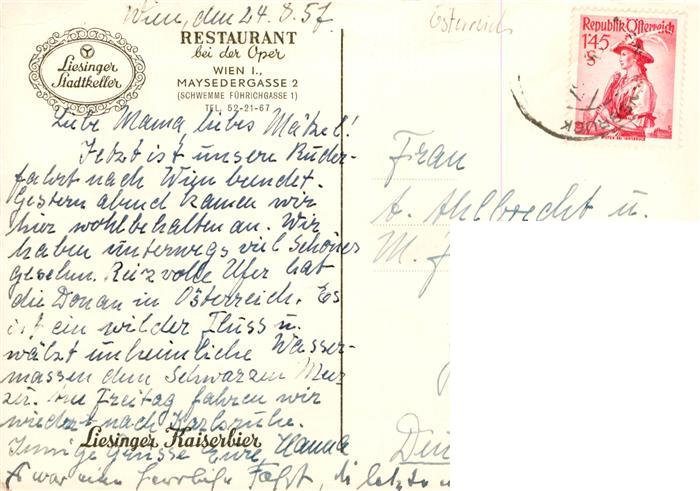 Wien, den 24.8.57
Österreich
Liesinger
Stadtkeller
RESTAURANT
bei der Oper
WIEN I.,
MAYSEDERGASSE 2
(SCHWEMME FÜHRICHGASSE 1)
TEL. 52-21-67
Republik Österreich
1.45
S
Liebe Mama, liebes Mätzel!
Jetzt ist unsere Ruder-
fahrt nach Wien beendet.
Gestern abend kamen wir
hier wohlbehalten an. Wir
haben unterwegs viel Schönes
gesehn. Reizvolle Ufer hat
die Donau in Österreich. Es
ist ein wilder Fluss u.
wälzt unheimliche Wasser-
massen dem Schwarzen Meer
zu. Am Freitag fahren wir
wieder nach Karlsruhe.
Liesinger Kaiserbier
Innige Grüsse Eure Hanna
Es war eine herrliche Fahrt, die letzte
Frau
A. Ahlbrecht u.
M.